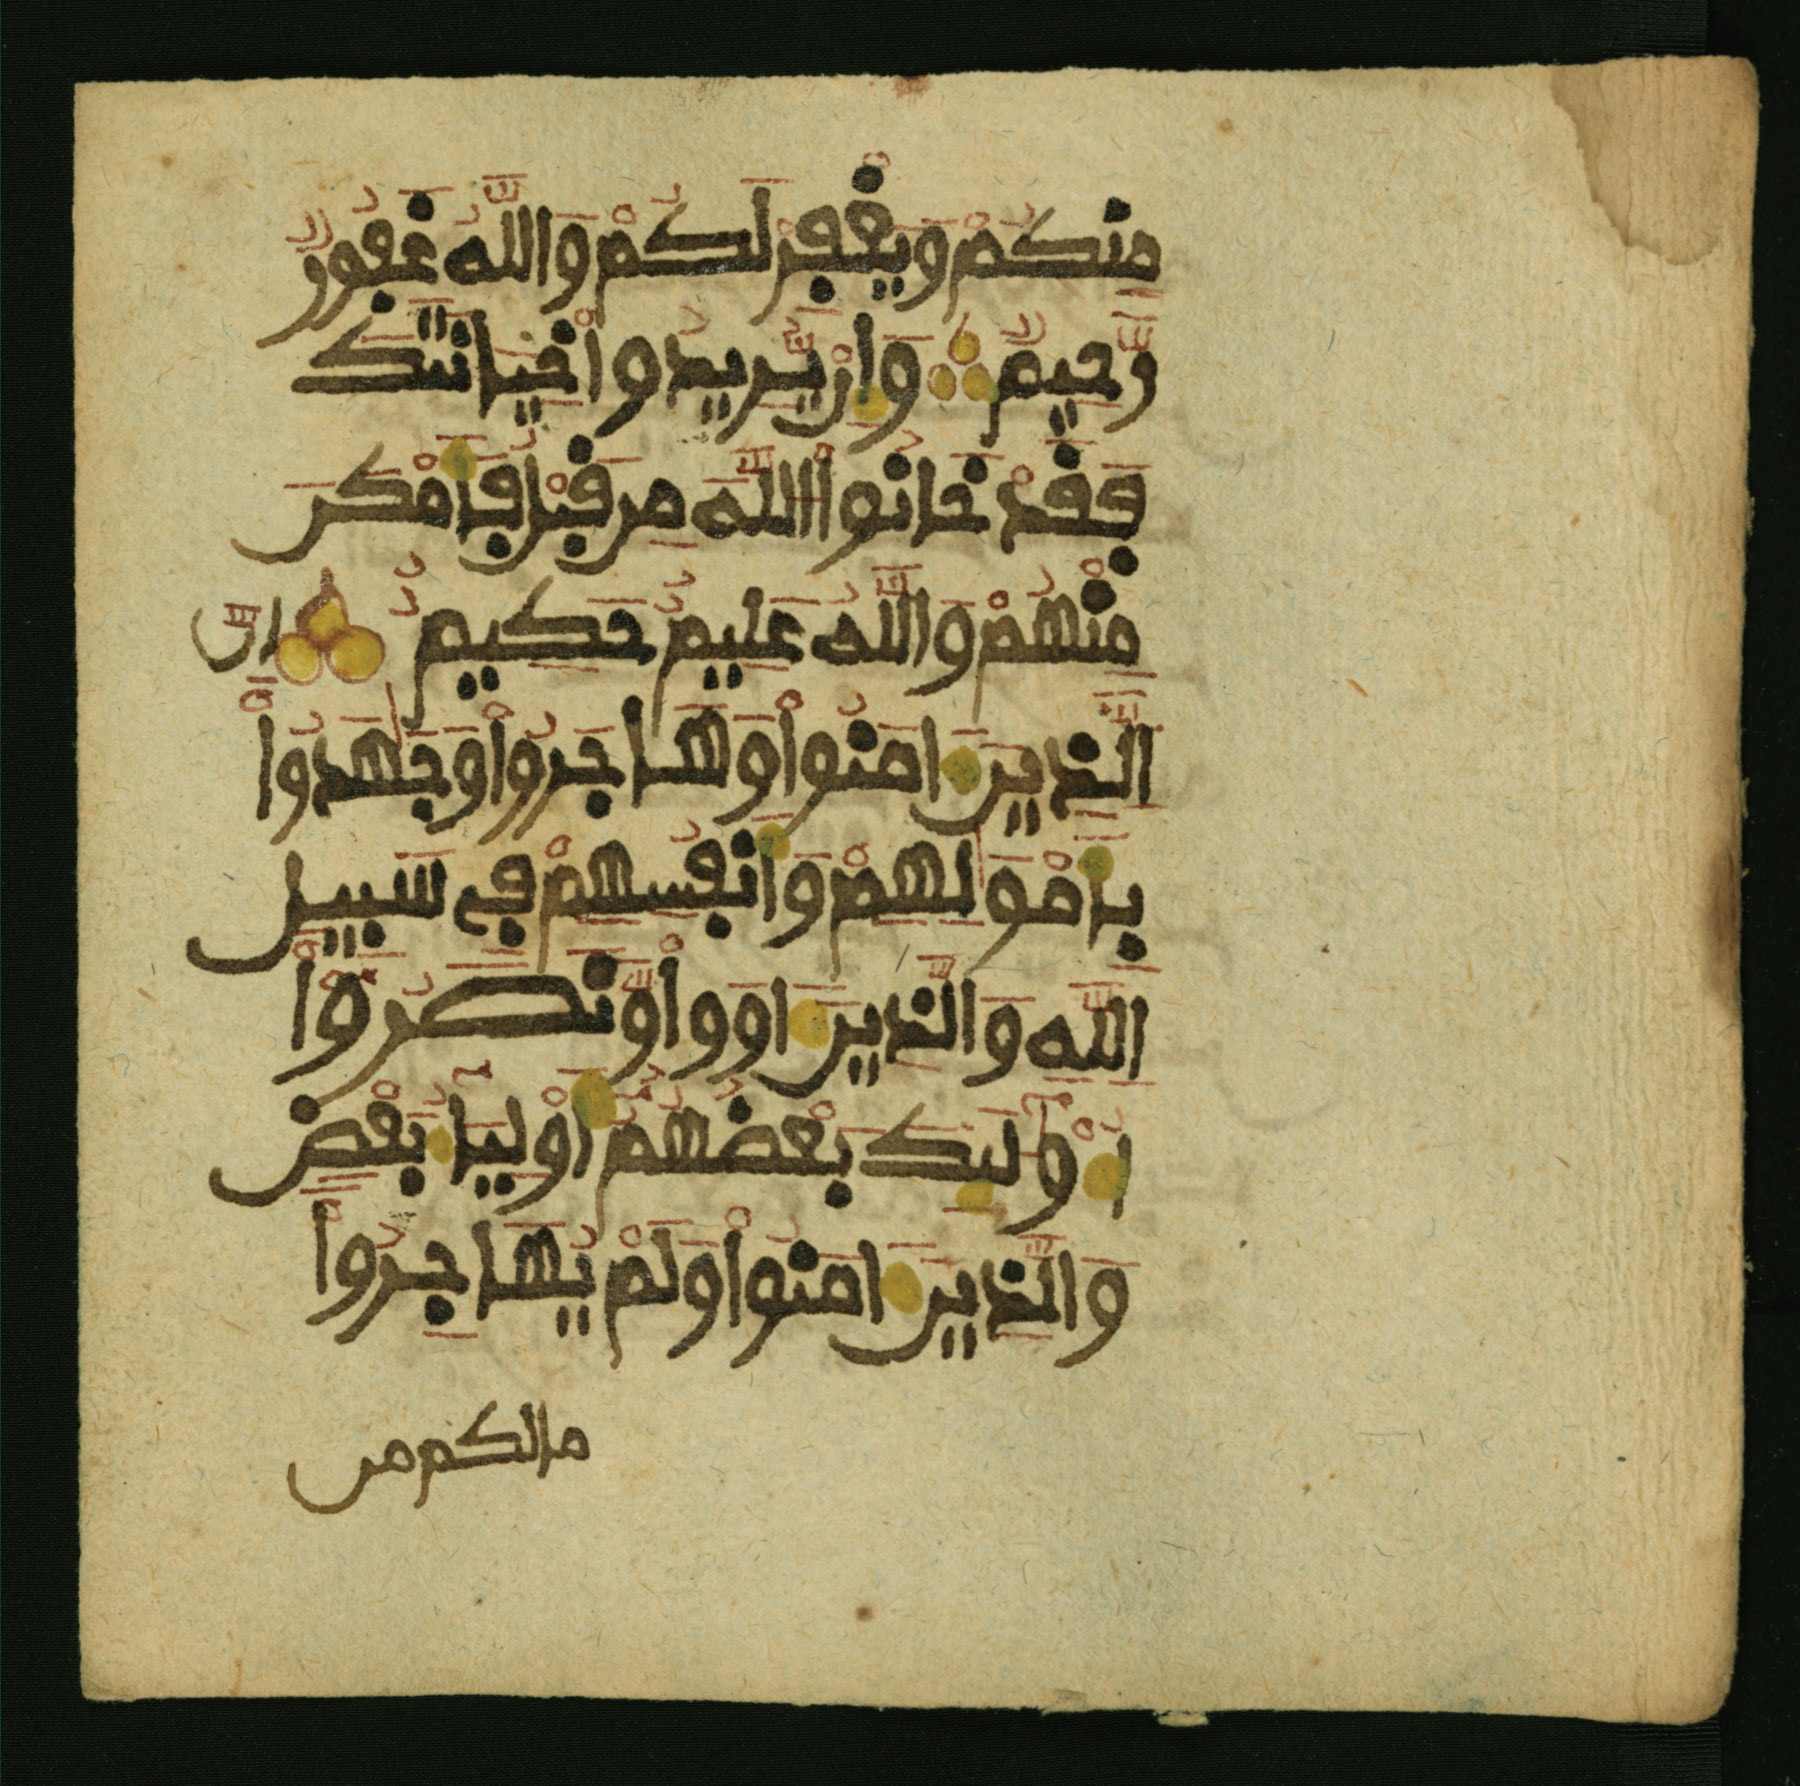 مِنكُمْ وَيَغْفِرْ لَكُمْ وَاللَّهُ غَفُورٌ
رَّحِيمٌ وَإِنْ يُّرِيدُواْ خِيَانَتَكَ
فَقَدْ خَانُواْ اللَّهَ مِن قَبْلُ فَأَمْكَنَ
مِنْهُمْ وَاللَّهُ عَلِيمٌ حَكِيمٌ إِنَّ
الَّذِينَ ءَامَنُواْ وَهَاجَرُواْ وَجَٰهَدُواْ
بِأَمْوَٰلِهِمْ وَأَنفُسِهِمْ فِي سَبِيلِ
اللَّهِ وَالَّذِينَ ءَاوَواْ وَّنَصَرُوٓاْ
أُوْلَٰٓئِكَ بَعْضُهُمُۥٓ أَوْلِيَآءُ بَعْضٍ
وَالَّذِينَ ءَامَنُواْ وَلَمْ يُهَاجِرُواْ
مالكم من